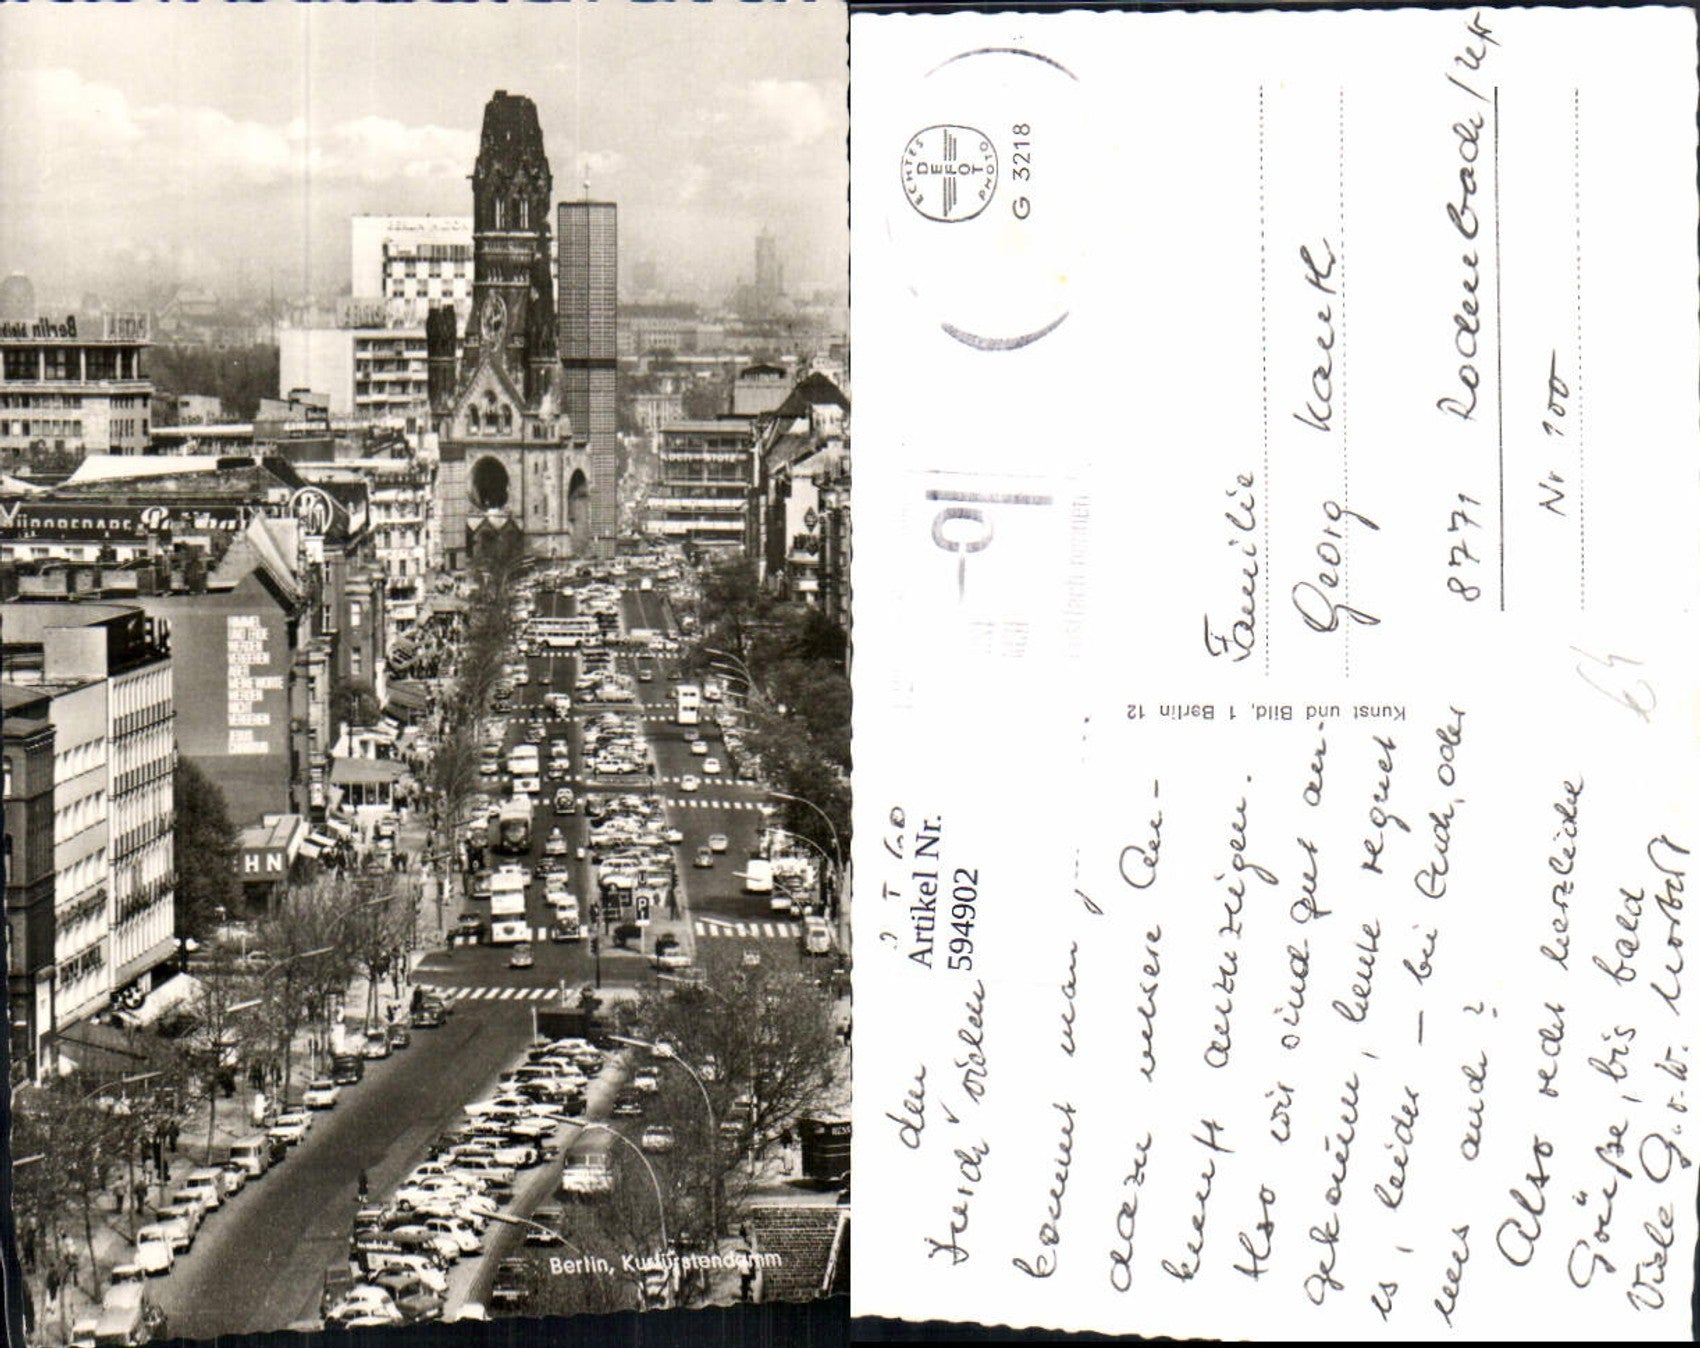 Berlin bleibt
NÜRNBERGER
HIMMEL
UND ERDE
WERDEN
VERGEHEN
ABER
MEINE WORTE
WERDEN
NICHT
VERGEHEN
JESUS
CHRISTUS
HN
P
Berlin, Kurfürstendamm
ECHTES
DEFOT
PHOTO
G 3218
Artikel Nr.
594902
Kunst und Bild, 1 Berlin 12
Familie
Georg Kauth
8771 Rodenbach/
Nr 100
Durch den vielen
kommt man
dazu unsere An-
kunft anzuzeigen.
Also wir sind gut an-
gekommen, heute regnet
es, leider – bei Euch, oder
uns auch?
Also recht herzliche
Grüße, bis bald
Viele G. u. K. Norbert